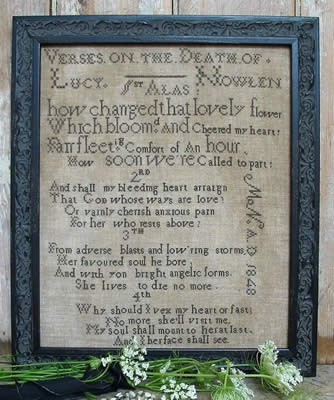 VERSES. ON. THE. DEATH. OF.
LUCY. NOWLEN
1ST ALAS!
how changed that lovely flower
Which bloomd and cheered my heart:
Fair fleetig comfort of An hour
How soon we're called to part:
2RD
And shall my bleeding heart arraign
That God whose ways are love?
Or vainly cherish anxious pain
For her who rests above?
3TH
From adverse blasts and low'ring storms,
Her favoured soul he bore,
And with yon bright angelic forms.
She lives to die no more.
4th
Why should I vex my heart or fast;
No more she'll visit me,
My soul shall mount to her at last.
And her face shall see.
A.D 1848